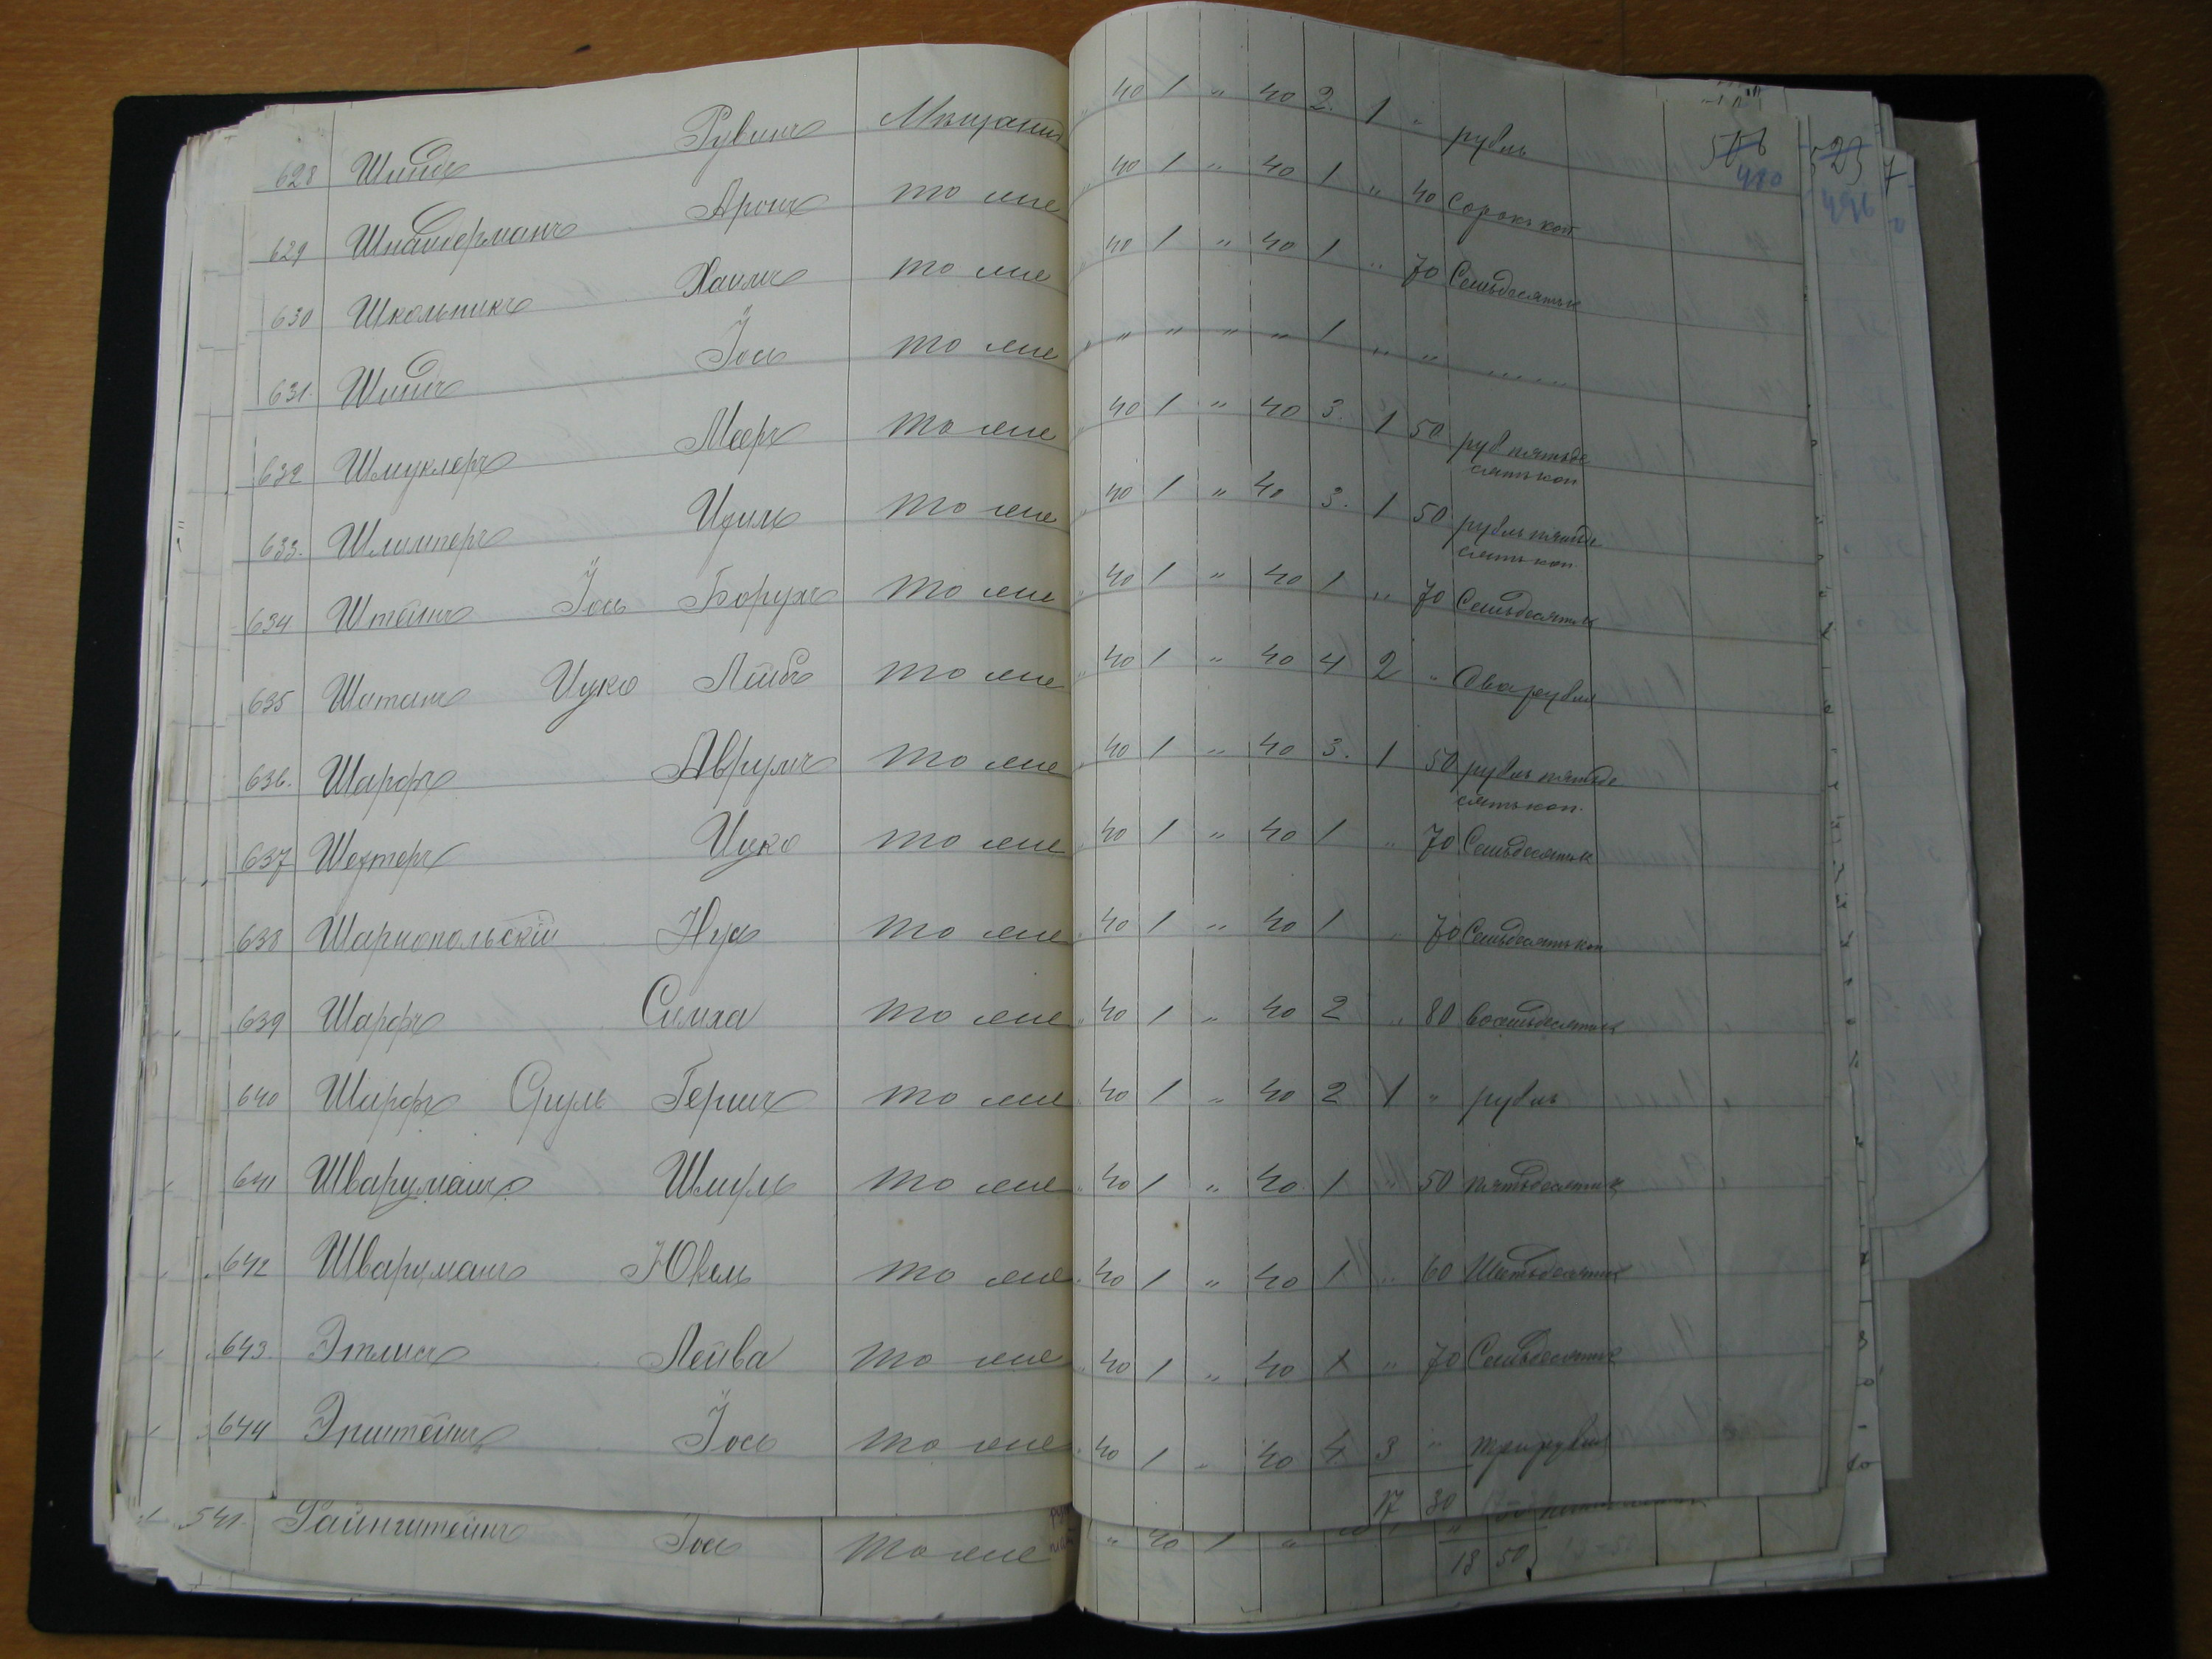 506
480
523
496
7
628 Шмидъ Рувинъ Мѣщанинъ „ 40 1 „ 40 2. 1 „ рубль
629 Шнайдерманъ Аронъ то же „ 40 1 „ 40 1 „ 40 Сорокъ коп
630 Школьникъ Хаимъ то же „ 40 1 „ 40 1 „ 70 Семьдесятъ к
631. Шмидъ Іось то же „ „ „ „ „ 1 „ „
632 Шмуклеръ Мееръ то же „ 40 1 „ 40 3. 1 50 руб пятьде
сятъ коп
633. Шлимперъ Ицикъ то же „ 40 1 „ 40 3. 1 50 рубль пятьде
сятъ коп
634 Штейнъ Іось Борухъ то же „ 40 1 „ 40 1 „ 70 Семьдесятъ к
635 Шотанъ Ицко Лейбъ то же „ 40 1 „ 40 4 2 „ Два рубля
636. Шарфъ Аврумъ то же „ 40 1 „ 40 3. 1 50 рубль пятьде
сятъ коп.
637 Шехтеръ Ицко то же „ 40 1 „ 40 1 „ 70 Семьдесятъ к
638 Шаркопольскій Нус то же „ 40 1 „ 40 1 „ 70 Семьдесятъ коп
639 Шарфъ Симха то же „ 40 1 „ 40 2 „ 80 Восемьдесятъ к
640 Шарфъ Сруль Гершъ то же „ 40 1 „ 40 2 1 „ рубль
641 Шварцманъ Шмуль то же „ 40 1 „ 40 1 „ 50 пятьдесятъ к
642 Шварцманъ Юкель то же „ 40 1 „ 40 1 „ 60 Шестьдесятъ к
643 Этлисъ Лейва то же „ 40 1 „ 40 1 „ 70 Семьдесятъ к
644 Эпштейнъ Іось то же „ 40 1 „ 40 4 3 „ три рубля
17 30
541. Файнштейнъ Іось то же „ 40 1 „
18 50